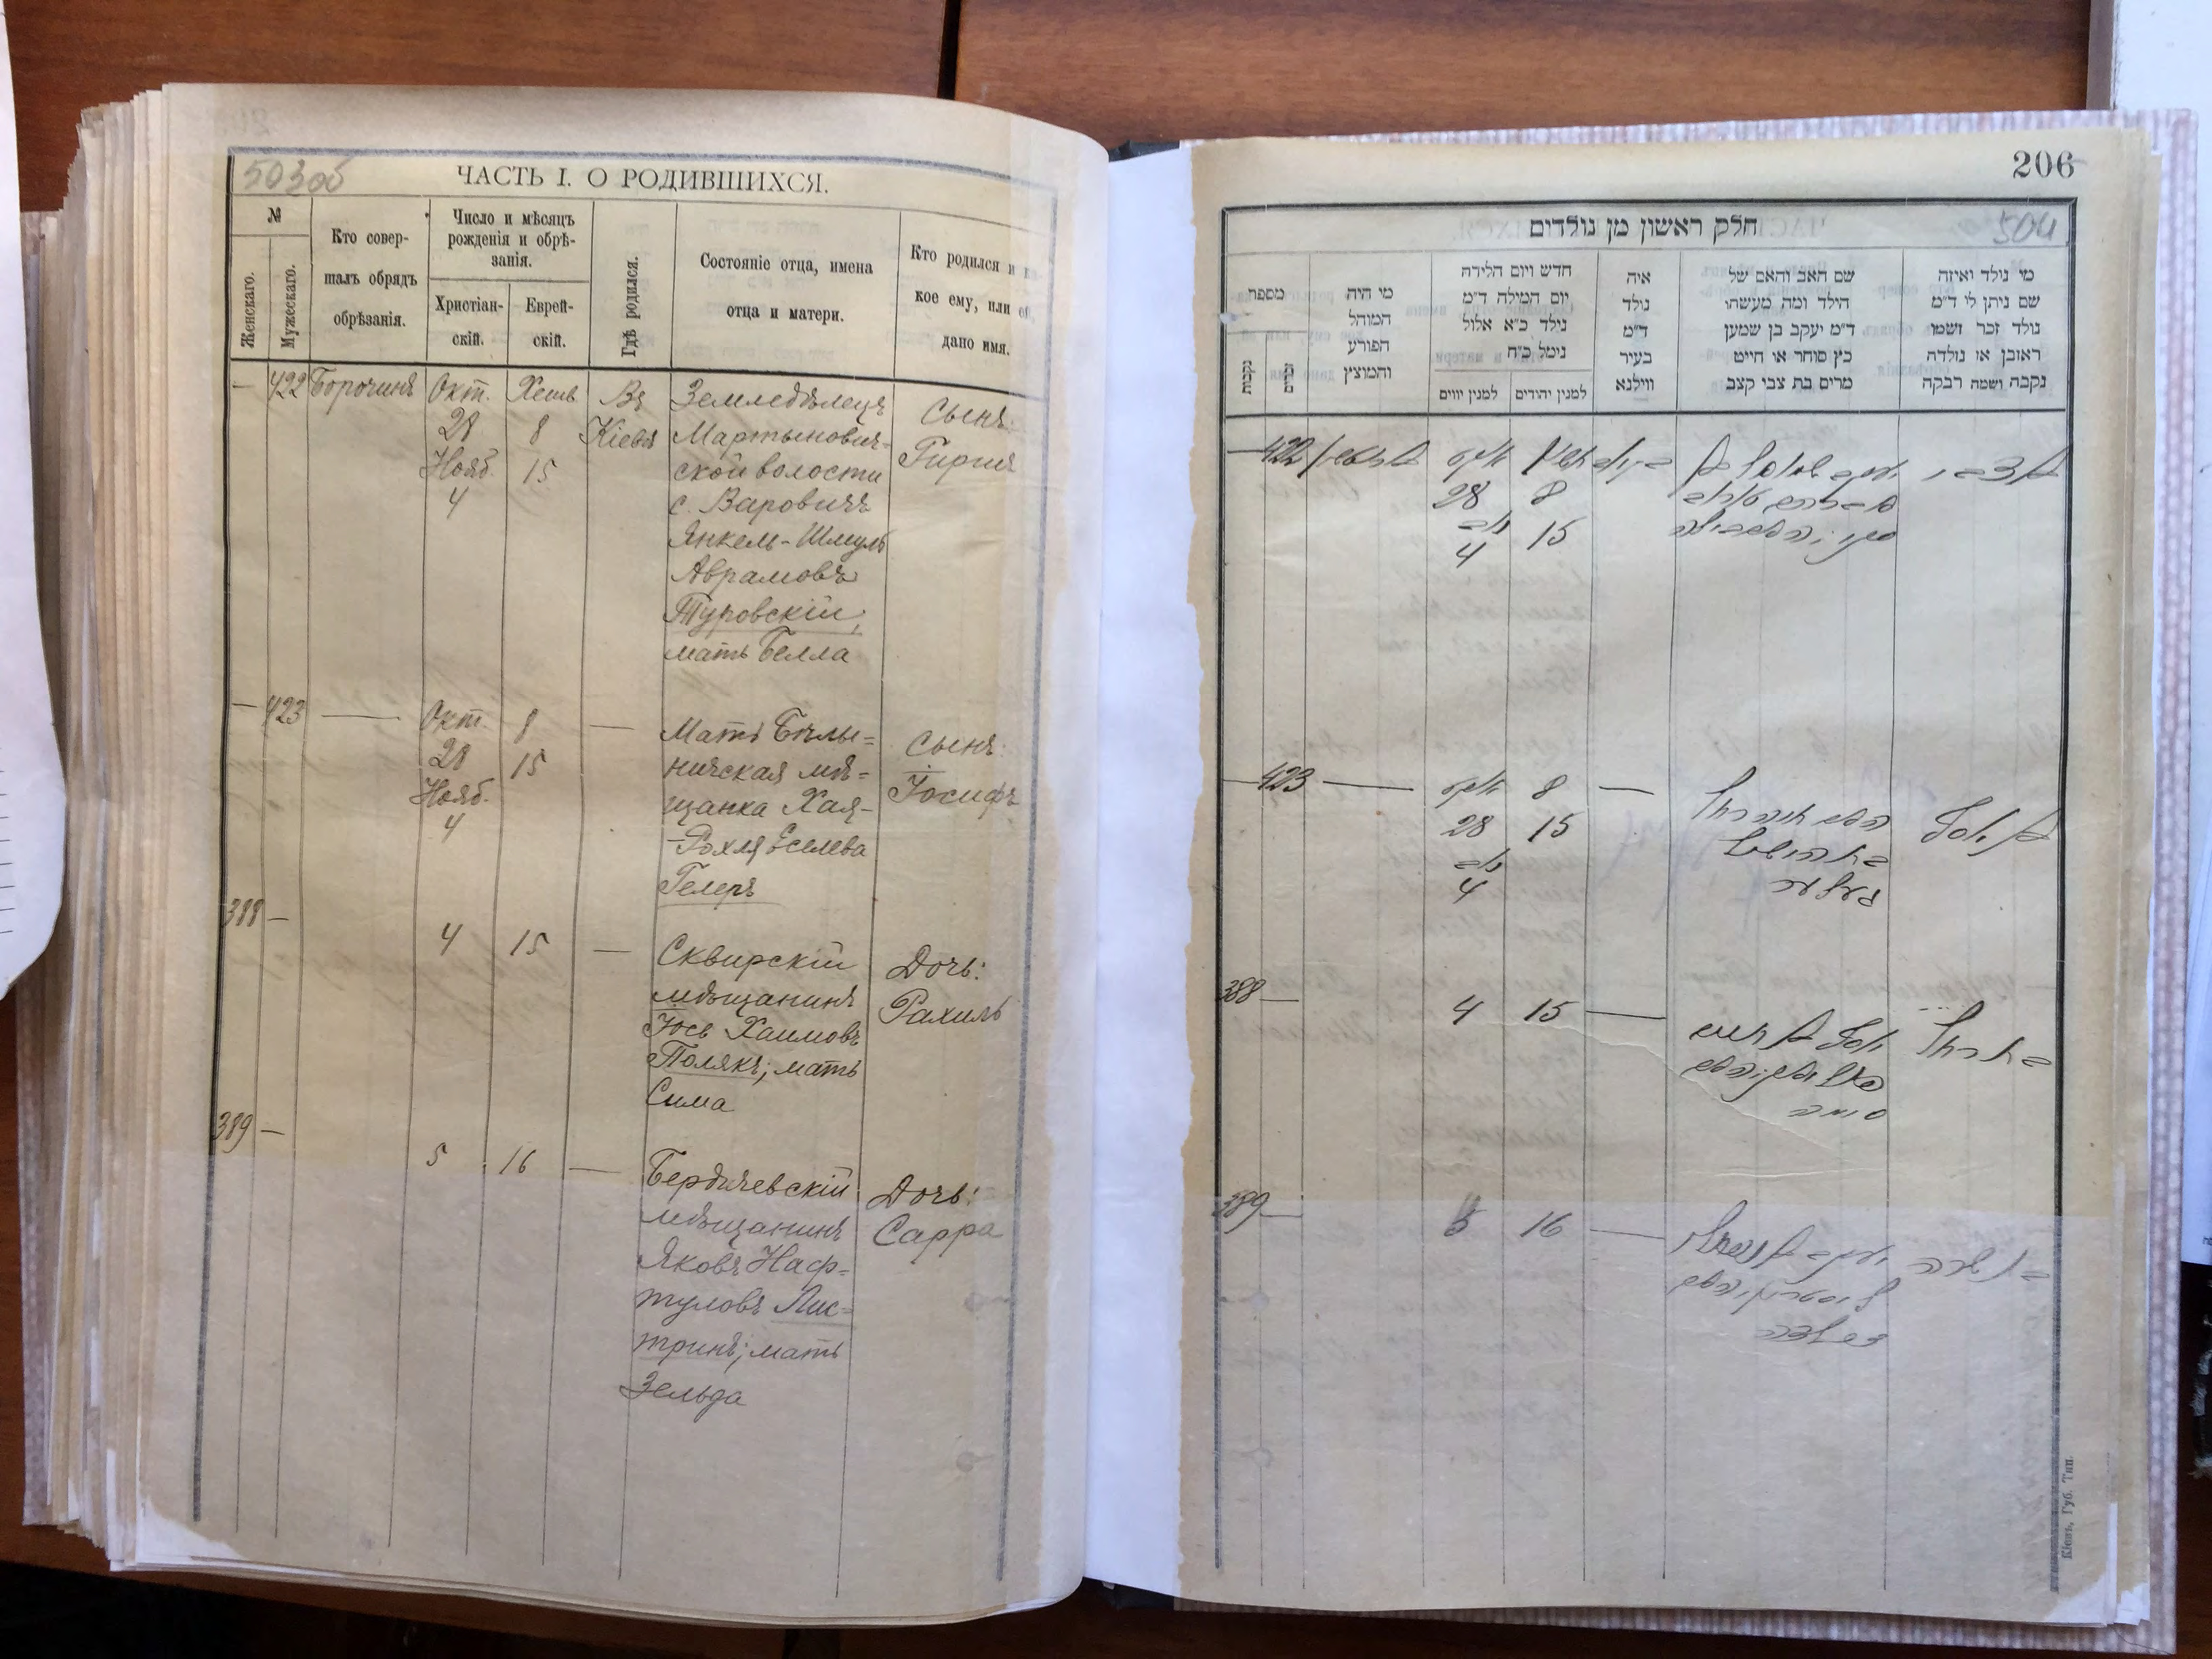 503об
ЧАСТЬ I. О РОДИВШИХСЯ.
№
Женскаго.
Мужескаго.
Кто совер-
шалъ обрядъ
обрѣзанія.
Число и мѣсяцъ
рожденія и обрѣ-
занія.
Христіан-
скій.
Еврей-
скій.
Гдѣ родился.
Состояніе отца, имена
отца и матери.
Кто родился и ка-
кое ему, или ей
дано имя.
— 422 Борочинъ Окт. 28 Нояб. 4 Хешв 8 15 Въ Кіевѣ
Земледѣлецъ
Мартынович-
ской волости
с. Варовичъ
Янкель-Шмуль
Аврамовъ
Туровскій,
мать Белла
Сынъ:
Гирш
— 423 — Окт. 28 Нояб. 4 8 15 —
Мать
ничская мѣ-
щанка Хая-
-Рохля Еселева
Гелеръ
Сынъ:
Іосифъ
388 — 4 15 —
Сквирскій
мѣщанинъ
Іось Хаимовъ
Полякъ; мать
Сима
Дочь:
Рахиль
389 — 5 16 —
Бердичевскій
мѣщанинъ
Яковъ Наф-
туловъ Лис-
тринъ; мать
Зельда
Дочь:
Сарра
206
504
חלק ראשון מן נולדים
מספר
נקבות
זכרים
מי היה
המוהל
הפורע
והמוצץ
חדש ויום הלידה
יום המילה ד"מ
נולד כ"א אלול
נימל כ"ח
למנין יהודים
למנין יווים
איה
נולד
ד"מ
בעיר
ווילנא
שם האב והאם של
הילד ומה מעשהו
ד"מ יעקב בן שמעון
כץ סוחר או חייט
מרים בת צבי קצב
מי נולד ואיזה
שם ניתן לו ד"מ
נולד זכר ושמו
ראובן או נולדה
נקבה ושמה רבקה
— 422 28 8 4 15
בן צבי
— 423 — 28 8 4 15 —
בן יוסף
388 — 4 15 —
יוסף בן חיים
סימה
בת רחל
389 — 5 16 —
יעקב בן נפתלי
זעלדה
בת שרה
Кіевъ, Губ. Тип.